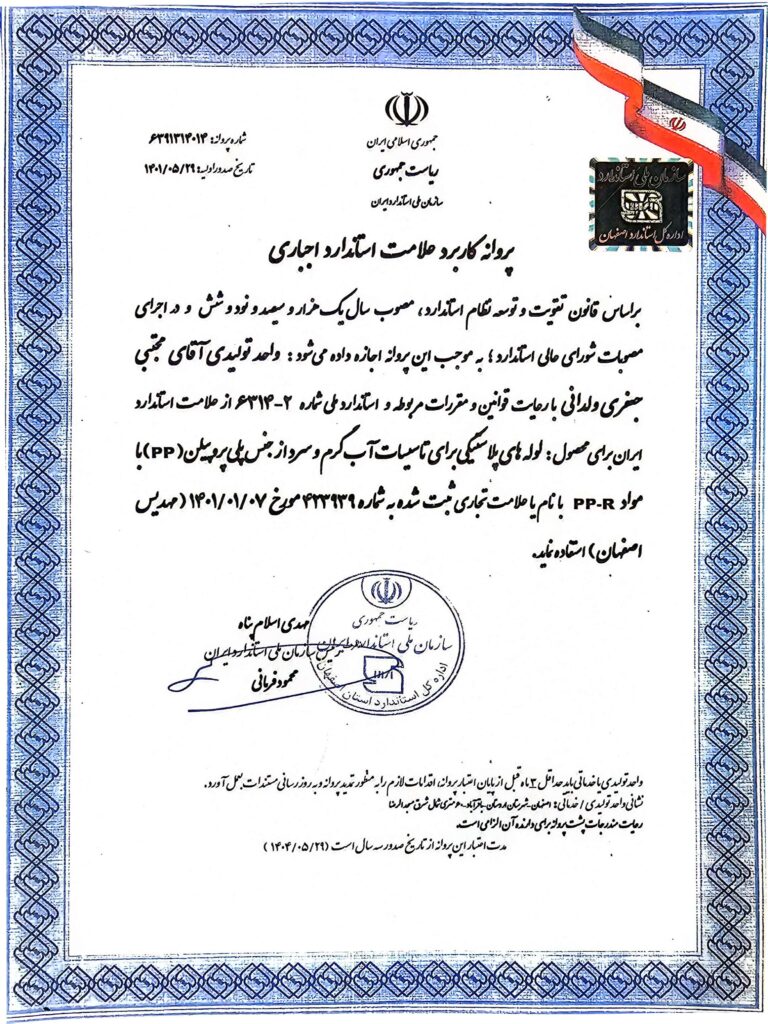 جمهوری اسلامی ایران
ریاست جمهوری
سازمان ملی استاندارد ایران
شماره پروانه: ۶۳۹۱۳۱۴۰۱۴
تاریخ صدور اولیه: ۱۴۰۱/۰۵/۲۹
سازمان ملی استاندارد
اداره کل استاندارد اصفهان
پروانه کاربرد علامت استاندارد اجباری
براساس قانون تقویت و توسعه نظام استاندارد، مصوب سال یک هزار و سیصد و نود و شش و در اجرای
مصوبات شورای عالی استاندارد؛ به موجب این پروانه اجازه داده می‌شود: واحد تولیدی آقای مجتبی
جعفری ولدانی با رعایت قوانین و مقررات مربوطه و استاندارد ملی شماره ۲-۶۳۱۴ از علامت استاندارد
ایران برای محصول: لوله های پلاستیکی برای تاسیسات آب گرم و سرد از جنس پلی پروپیلن (PP) با
مواد PP-R با نام یا علامت تجاری ثبت شده به شماره ۴۲۳۹۳۹ مورخ ۱۴۰۱/۰۱/۰۷ (مهدیس
اصفهان) استفاده نماید.
مهدی اسلام پناه
رئیس سازمان ملی استاندارد ایران
محمود فرمانی
ریاست جمهوری
سازمان ملی استاندارد ایران
اداره کل استاندارد استان اصفهان
واحد تولیدی یا خدماتی باید حداقل ۳ ماه قبل از پایان اعتبار پروانه، اقدامات لازم را به منظور تمدید پروانه و به روز رسانی مستندات بعمل آورد.
نشانی واحد تولیدی / خدماتی: اصفهان- شهرستان اردستان- باقرآباد- ۶۰ متری شمال شرق مسجد الرضا
رعایت مندرجات پشت پروانه برای دارنده آن الزامی است.
مدت اعتبار این پروانه از تاریخ صدور سه سال است (۱۴۰۴/۰۵/۲۹)